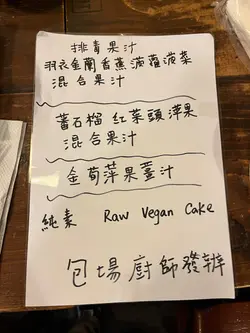 排毒果汁
羽衣金蘭香蕉菠蘿菠菜
混合果汁
蕃石榴 紅菜頭 苹果
混合果汁
金荀苹果薑汁
純素 Raw Vegan Cake
包場廚師發辦